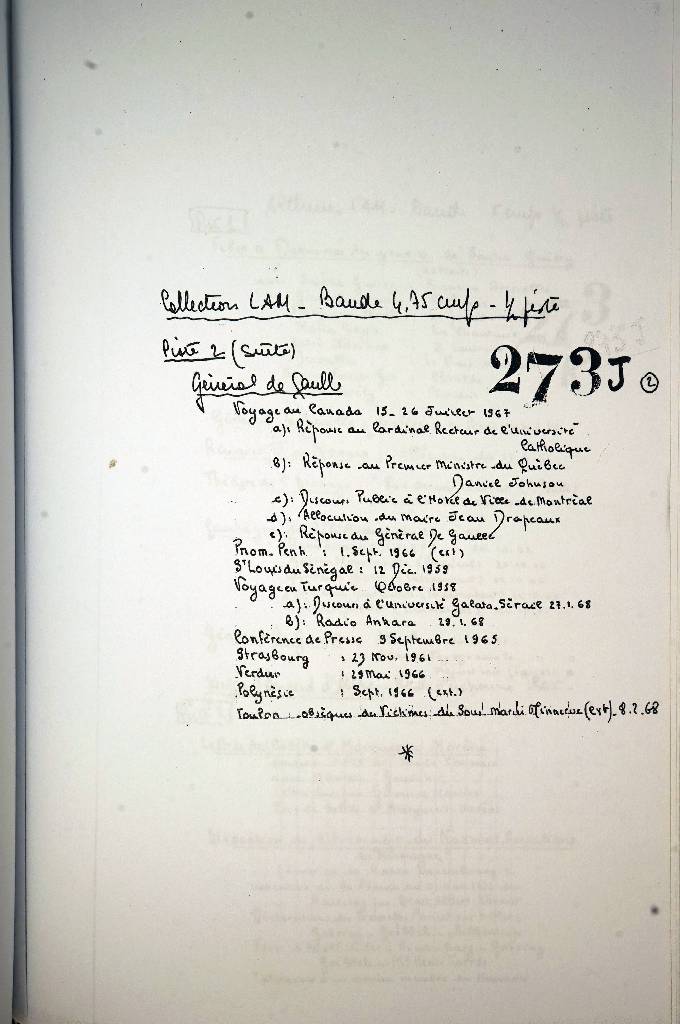 Collection LAM - Baude 4,75 cm/s - 1/2 piste
Piste 2 (Suite)
273J ②
Général de Gaulle
Voyage au Canada 15-26 Juillet 1967
a): Réponse au Cardinal Recteur de l'Université
Catholique
b): Réponse au Premier Ministre du Québec
Daniel Johnson
c): Discours Public à l'Hotel de Ville de Montréal
d): Allocution du Maire Jean Drapeaux
e): Réponse du Général De Gaulle
Pnom-Penh : 1. Sept. 1966 (ext)
St Louis du Sénégal : 12 Déc. 1959
Voyage en Turquie Octobre 1958
a): Discours à l'Université Galata-Sérail 27.1.68
b): Radio Ankara 29.1.68
Conférence de Presse 9 Septembre 1965
Strasbourg : 23 Nov. 1961
Verdun : 29 Mai 1966
Polynésie : Sept. 1966 (ext.)
Toulon : obsèques des Victimes du Sous' Marin Minerve (ext) - 8.2.68